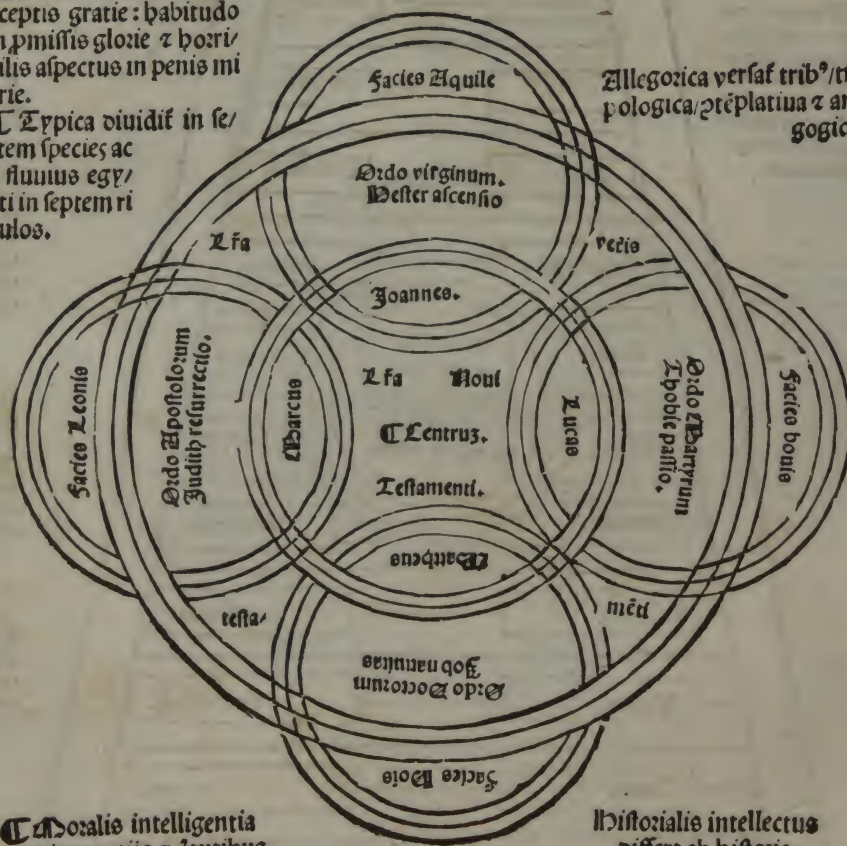 ceptis gratie: habitudo
n ꝓmissis glorie ⁊ horri/
ilis aspectus in penis mi
rie.
⸿ Typica diuidit᷑ in se/
tem species ac
fluuius egy/
ti in septem ri
ulos.
Facies Aquile
Allegorica versat᷑ tribꝰ/
pologica/ ↄtēplatiua ⁊ an
gogic
Ordo virginum.
Hester ascensio
Lr̄a
veteris
Joannes.
Facies Leonis
Ordo Apostolorum
Judith resurrectio.
Marcus
Lr̄a Noui
⸿ Centruꝫ.
Testamenti.
Lucas
Ordo Martyrum
Thobie passio.
Facies bouis
Mattheus
testa/
mēti
Ordo Doctorum
Job natiuitas
Facies Hois
⸿ Moralis intelligentia
Historialis intellectus
differt ab historia